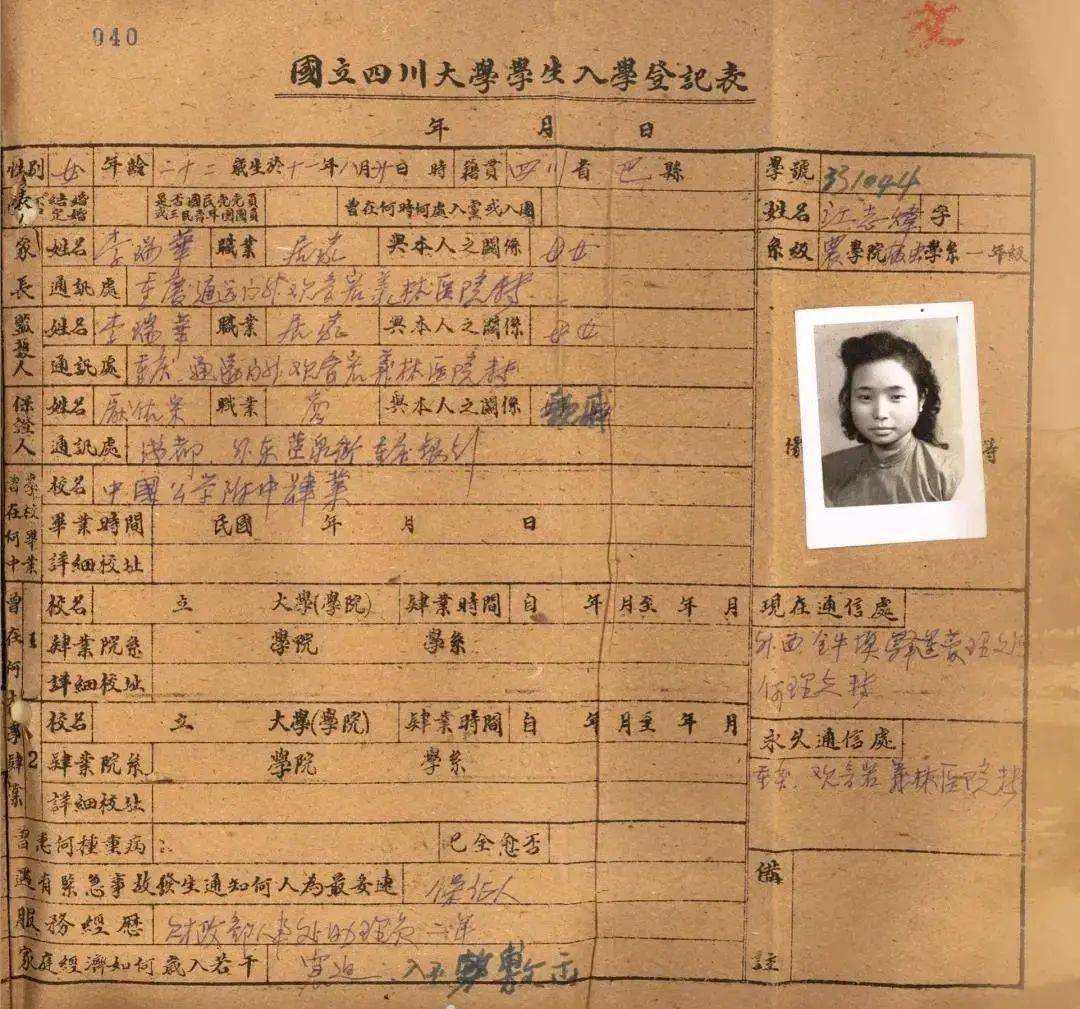 040
國立四川大學學生入學登記表
年 月 日
性別 女 年齡 二十二 歲生於十一年八月廿日 時 籍貫 四川 省 巴 縣
結婚 定婚 是否國民党党員或三民青年團團員 曾在何時何處入黨或入團
家長 姓名 李瑞華 職業 居家 與本人之關係 母女
通訊處 重慶通远门外观音岩義林医院转
監護人 姓名 李瑞華 職業 居家 與本人之關係 母女
通訊處 重庆通遠门外观音岩義林医院转
保證人 姓名 職業 商 與本人之關係 親戚
通訊處 成都 外东 街重庆银行
曾在何中學校畢業 校名 中國公学附中肄業
畢業時間 民國 年 月 日
詳細校址
曾在何大學肄業 1 校名 立 大學(學院) 肄業時間 自 年 月至 年 月
肄業院系 學院 學系
詳細校址
2 校名 立 大學(學院) 肄業時間 自 年 月至 年 月
肄業院系 學院 學系
詳細校址
曾患何種重病 已全愈否
遇有緊急事故發生通知何人為最妥速 保証人
服務經歷 财政部人事处助理员 二年
家庭經濟如何歲入若干 窘迫 入不敷
學號 331044
姓名 江志煒 字
系級 農學院病虫學系一年級
等
現在通信處
外西
永久通信處
重庆 观音岩義林医院转
備註